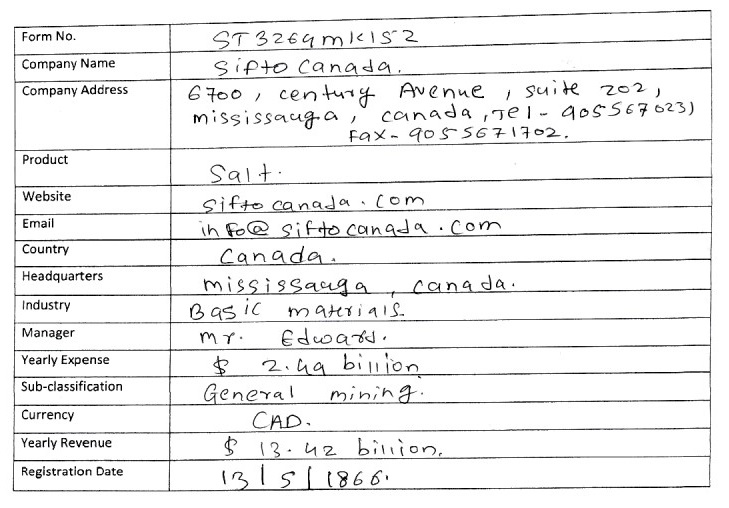 Form No. ST3269mk152
Company Name Sifto Canada.
Company Address 6700, century Avenue, suite 202,
mississauga, canada, Tel - 9055670231
Fax - 9055671702.
Product Salt.
Website siftocanada.com
Email info@siftocanada.com
Country Canada.
Headquarters mississauga, canada.
Industry Basic materials.
Manager mr. Edward.
Yearly Expense $ 2.49 billion
Sub-classification General mining.
Currency CAD.
Yearly Revenue $ 13.42 billion.
Registration Date 13|5|1866.